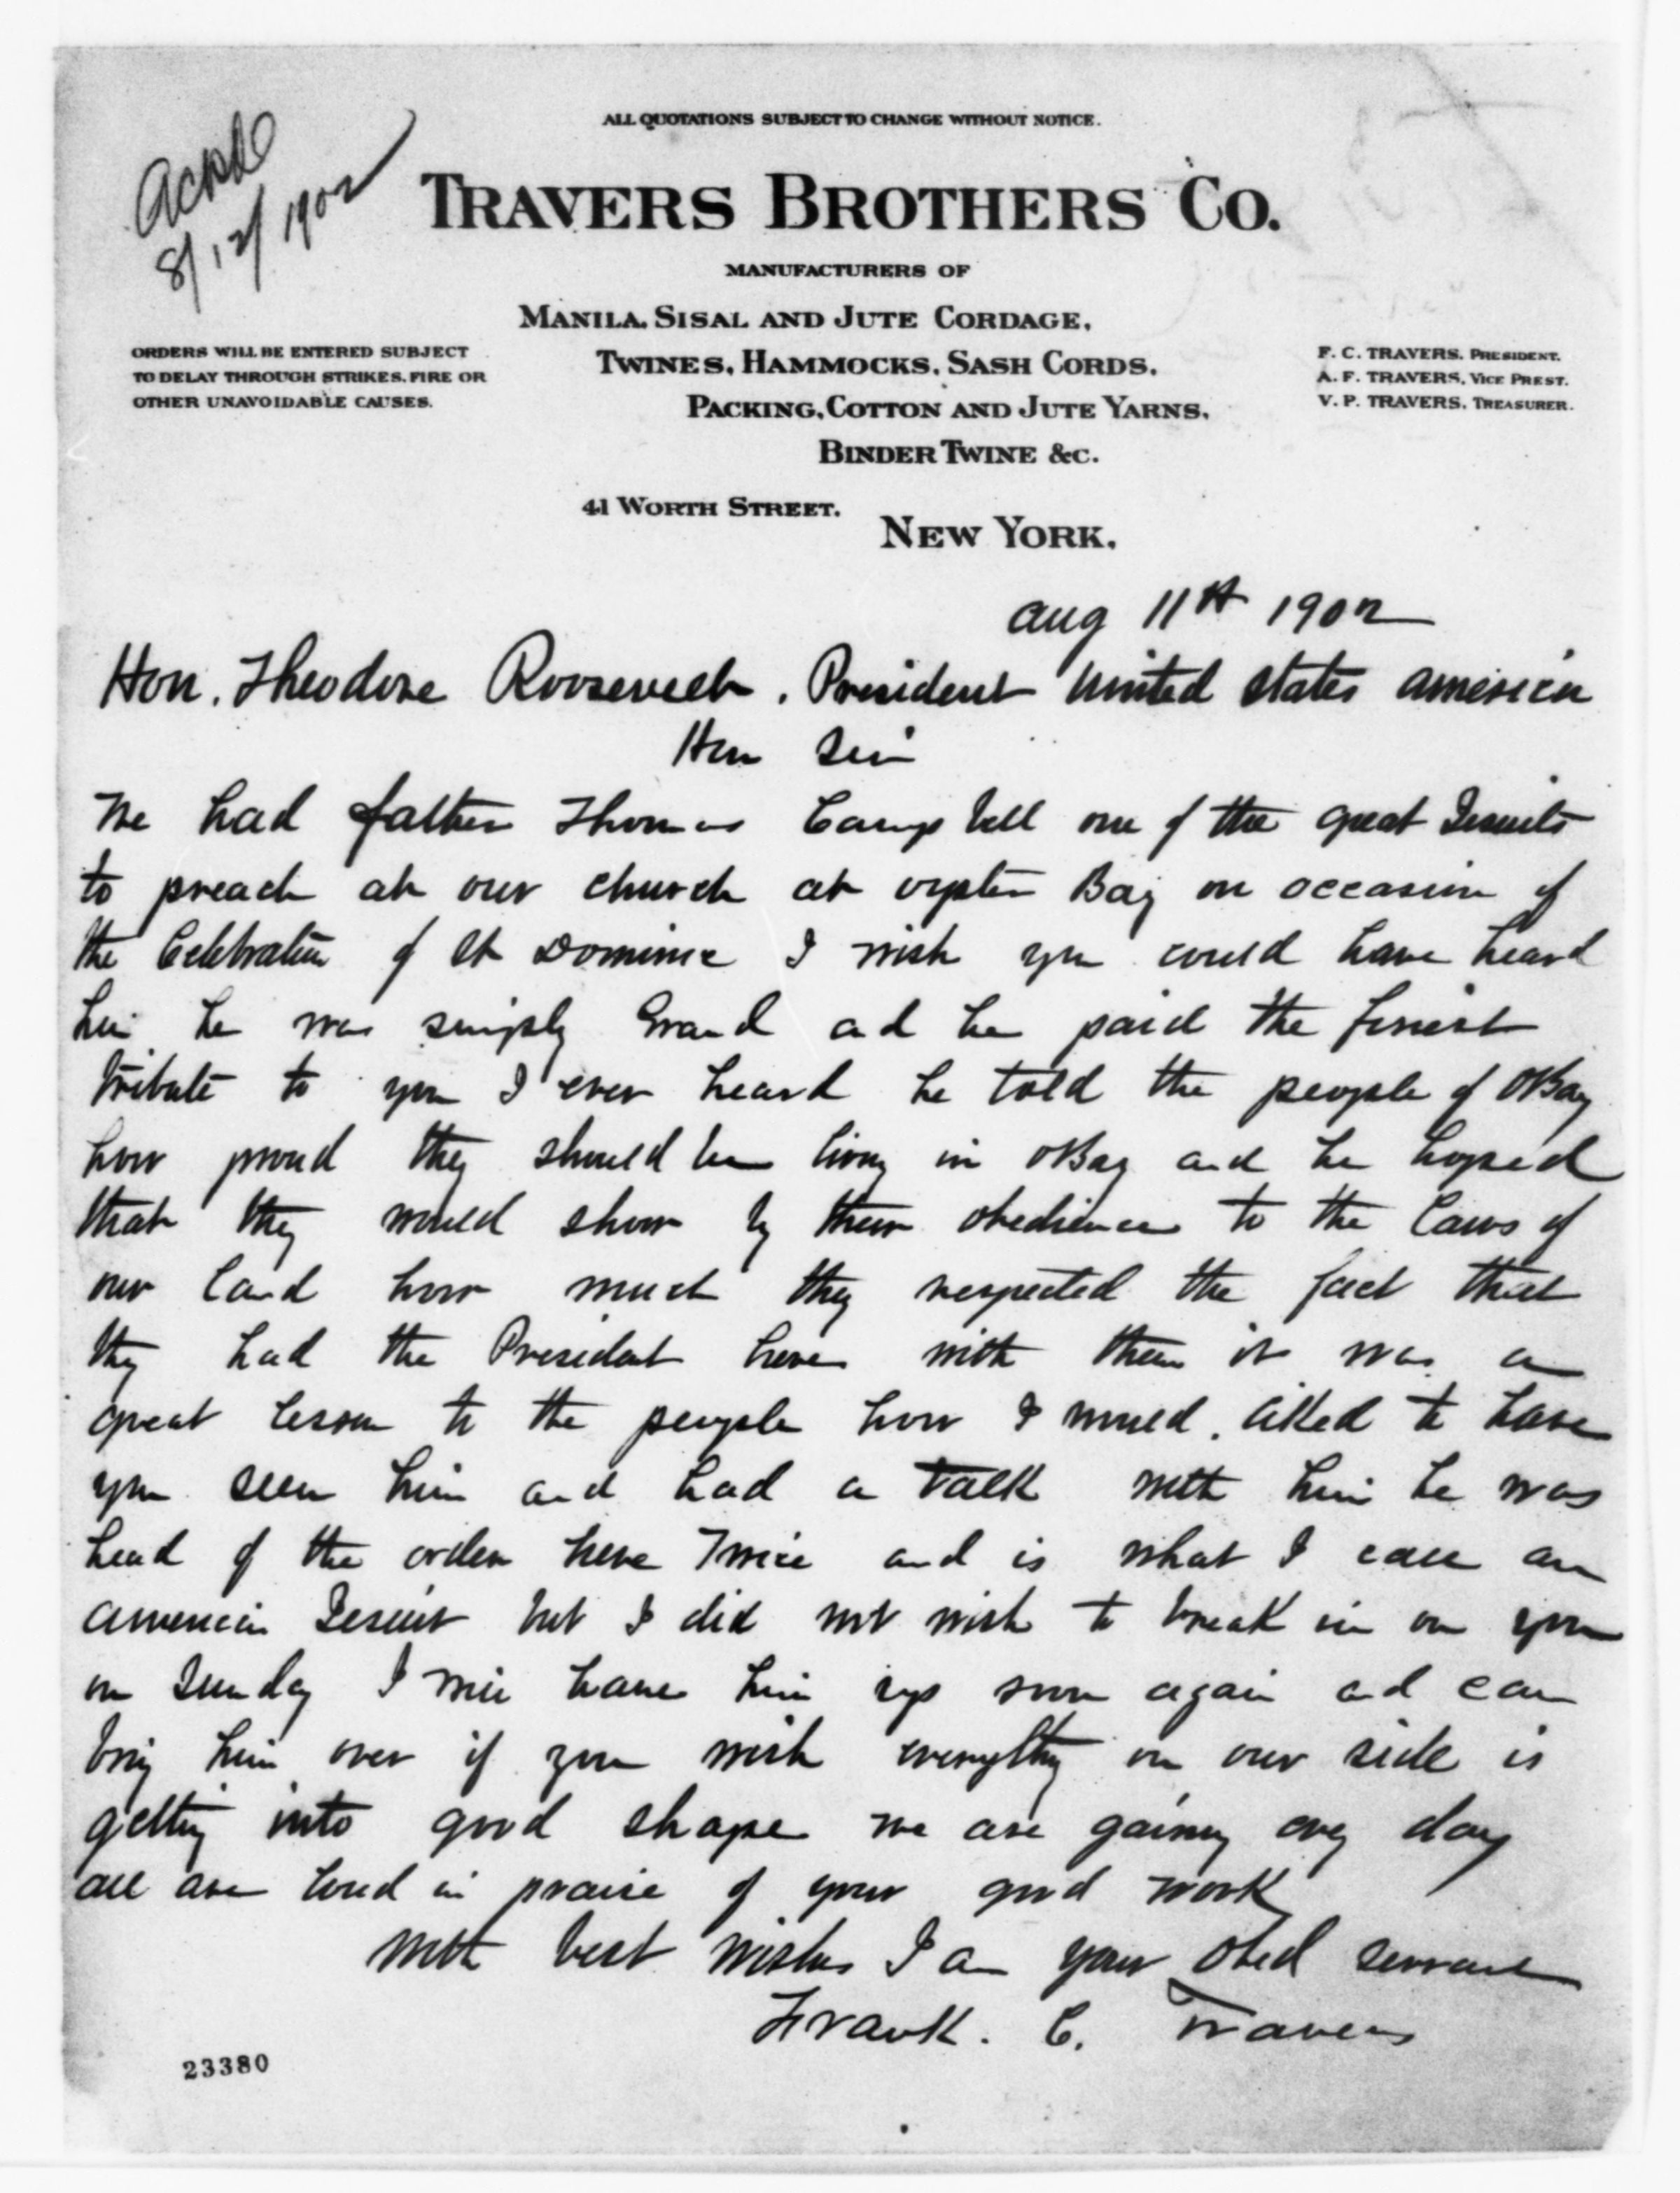 Ackd
8/12/1902
ALL QUOTATIONS SUBJECT TO CHANGE WITHOUT NOTICE.
TRAVERS BROTHERS CO.
MANUFACTURERS OF
MANILA, SISAL AND JUTE CORDAGE,
TWINES, HAMMOCKS, SASH CORDS,
PACKING, COTTON AND JUTE YARNS,
BINDER TWINE &C.
ORDERS WILL BE ENTERED SUBJECT
TO DELAY THROUGH STRIKES, FIRE OR
OTHER UNAVOIDABLE CAUSES.
F. C. TRAVERS, PRESIDENT.
A. F. TRAVERS, VICE PREST.
V. P. TRAVERS, TREASURER.
41 WORTH STREET.
NEW YORK.
Aug 11th 1902
Hon. Theodore Roosevelt. President United States America
Hon Sir
We had father Thomas Campbell one of the great Jesuits
to preach at our church at oyster Bay on occasion of
the Celebration of St Dominic I wish you could have heard
him he was simply Grand and he paid the finest
tribute to you I ever heard he told the people of OBay
how proud they should be living in OBay and he hoped
that they would show by their obedience to the Laws of
our land how much they respected the fact that
they had the President here with them it was a
great lesson to the people how I would liked to have
you seen him and had a talk with him he was
head of the order here Twice and is what I call an
American Jesuit but I did not wish to break in on you
on Sunday I will have him up soon again and can
bring him over if you wish everything on our side is
getting into good shape we are gaining every day
all are loud in praise of your good work
With best wishes I am your obed servant
Frank. C. Travers
23380